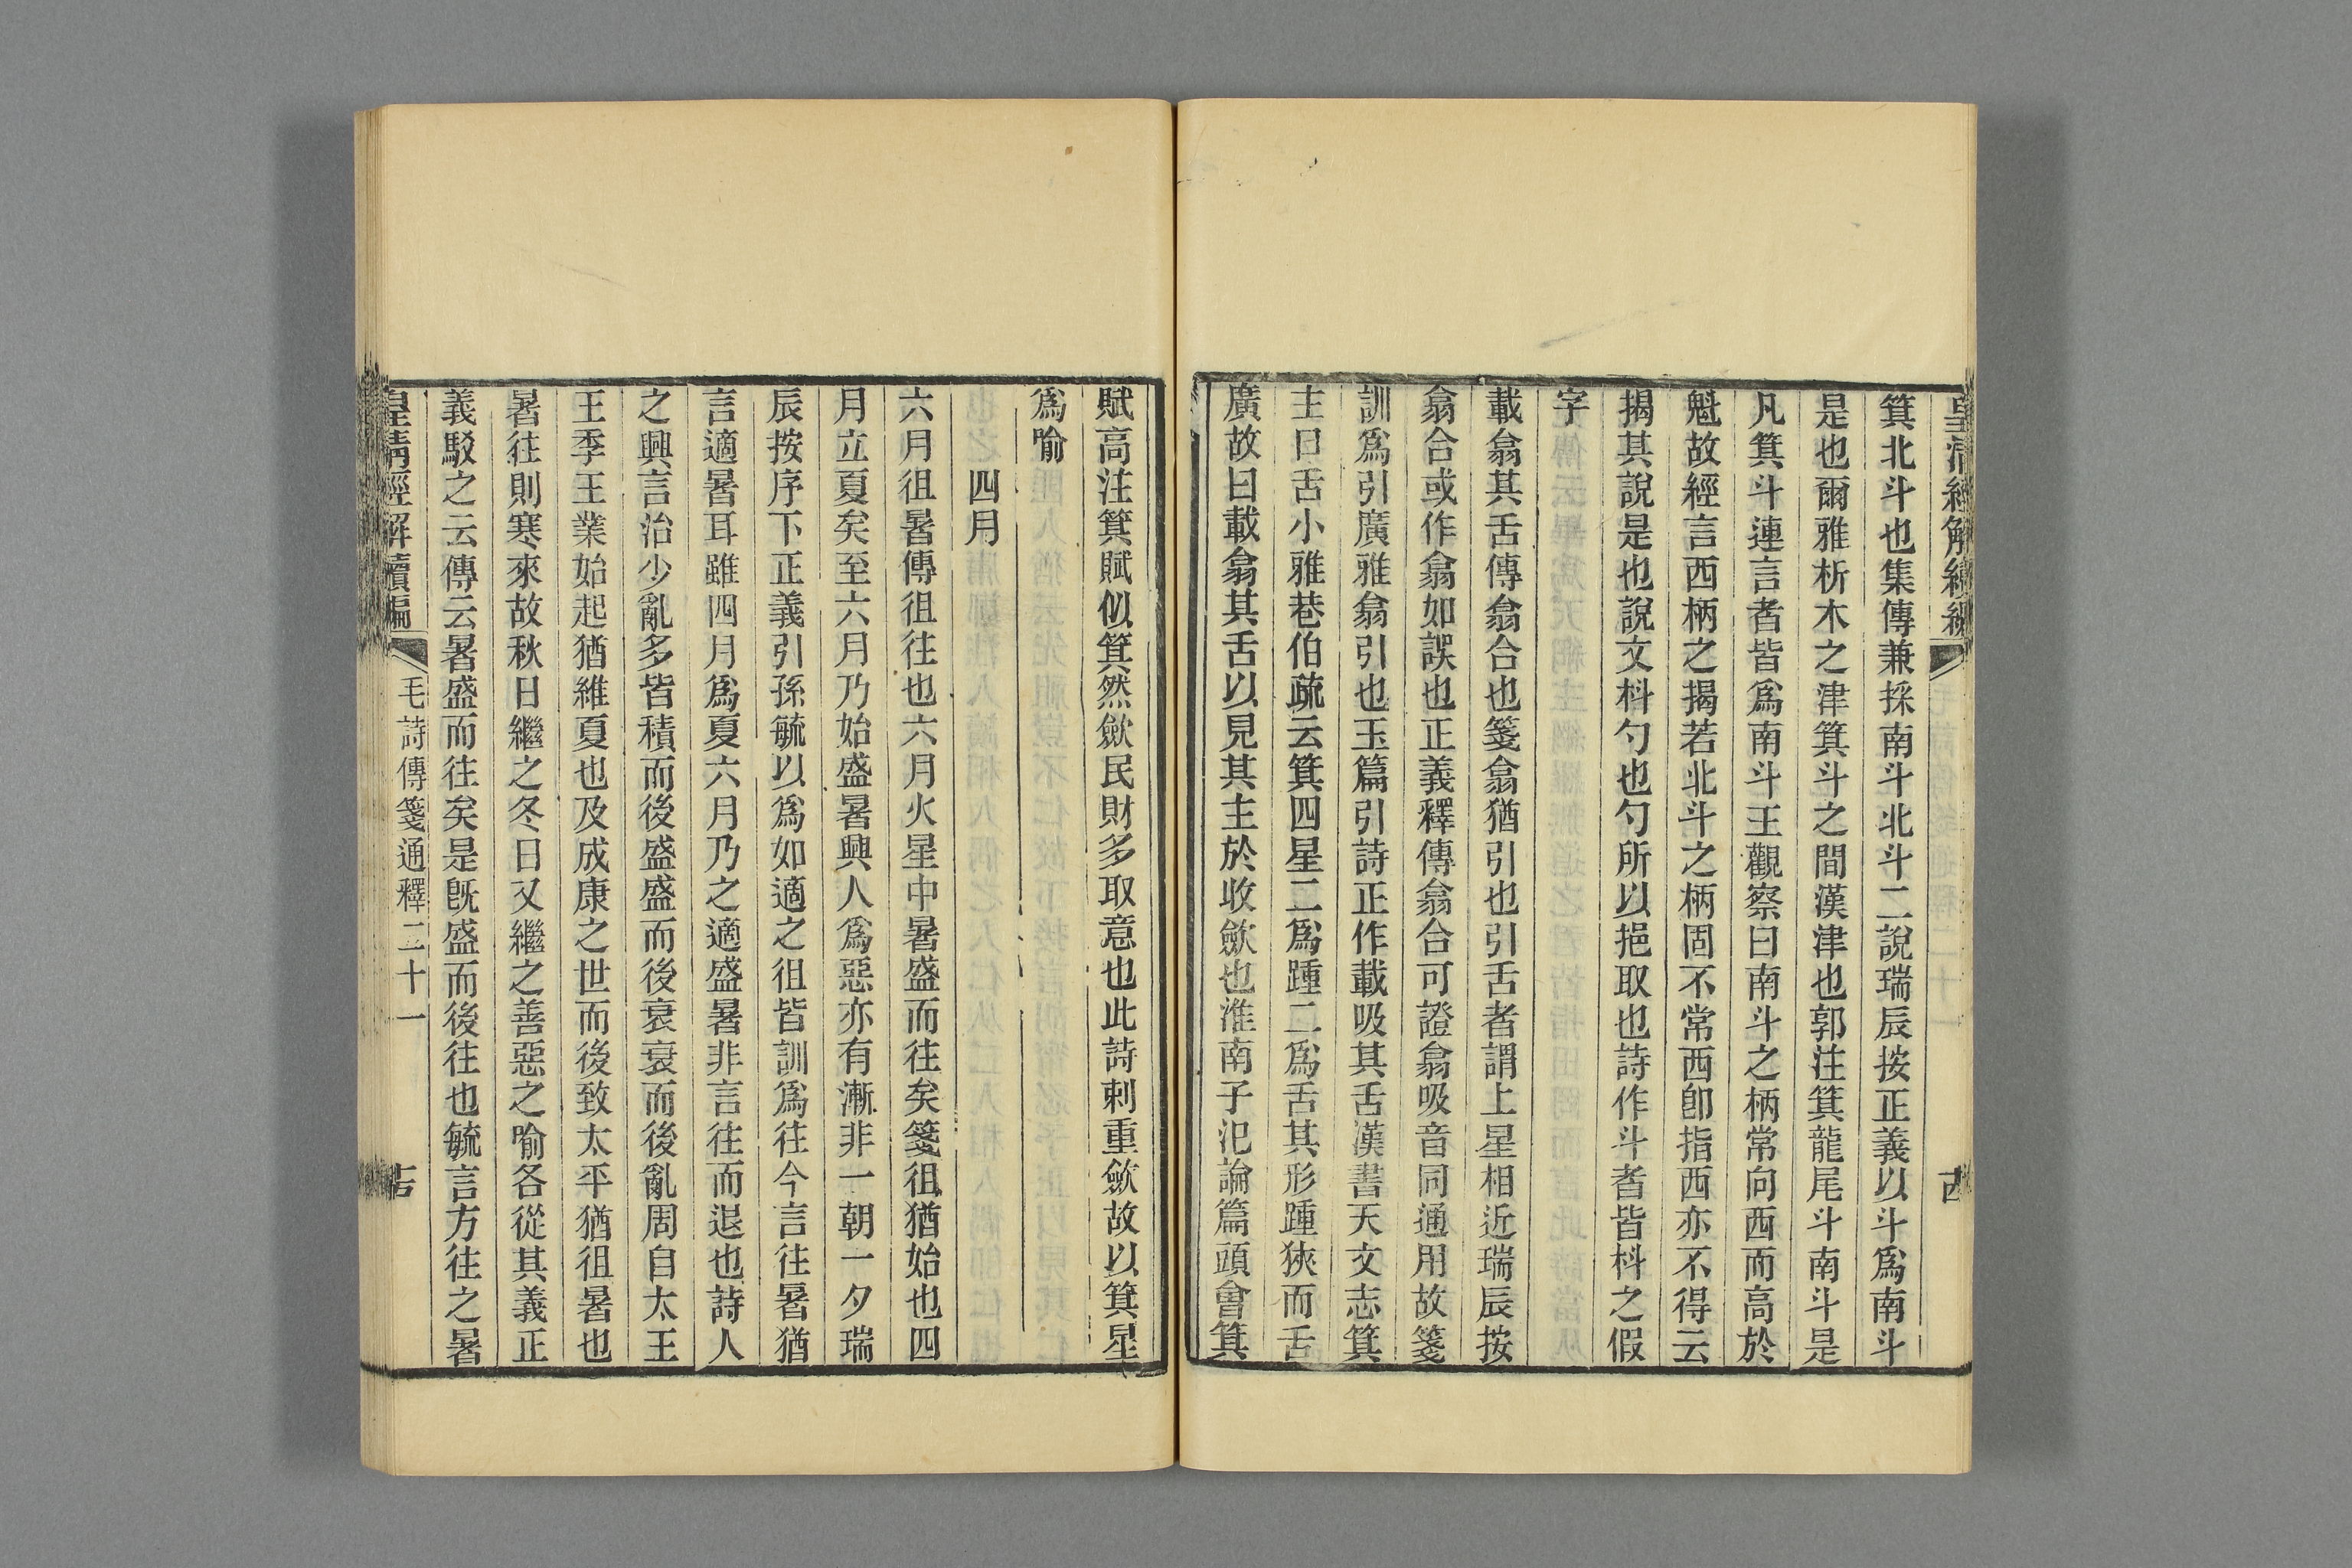 皇清經解續編
箕北斗也集傳兼採南斗北斗二說瑞辰按正義以斗爲南斗
是也爾雅析木之津箕斗之間漢津也郭注箕龍尾斗南斗是
凡箕斗連言者皆爲南斗王觀察曰南斗之柄常向西而高於
魁故經言西柄之揭若北斗之柄固不常西卽指西亦不得云
揭其說是也說文枓勺也勺所以挹取也詩作斗者皆枓之假
字
載翕其舌傳翕合也箋翕猶引也引舌者謂上星相近瑞辰按
翕合或作翕如誤也正義釋傳翕合可證翕吸音同通用故箋
訓爲引廣雅翕引也玉篇引詩正作載吸其舌漢書天文志箕
主口舌小雅巷伯疏云箕四星二爲踵二爲舌其形踵狹而舌
廣故曰載翕其舌以見其主於收斂也淮南子氾論篇頭會箕
賦高注箕賦似箕然斂民財多取意也此詩刺重斂故以箕星
爲喻
四月
六月徂暑傳徂往也六月火星中暑盛而往矣箋徂猶始也四
月立夏矣至六月乃始盛暑興人爲惡亦有漸非一朝一夕瑞
辰按序下正義引孫毓以爲如適之徂皆訓爲往今言往暑猶
言適暑耳雖四月爲夏六月乃之適盛暑非言往而退也詩人
之興言治少亂多皆積而後盛盛而後衰衰而後亂周自太王
王季王業始起猶維夏也及成康之世而後致太平猶徂暑也
暑往則寒來故秋日繼之冬日又繼之善惡之喻各從其義正
義駁之云傳云暑盛而往矣是旣盛而後往也毓言方往之暑
皇清經解續編
毛詩傳箋通釋二十一